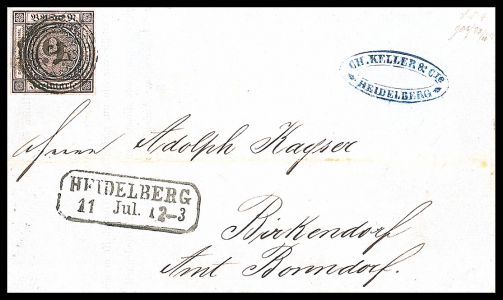 CH. KELLER & Cie
HEIDELBERG
Herrn Adolph Kayser
HEIDELBERG
11 Jul. 12-3
Birkendorf
Amt Bonndorf.